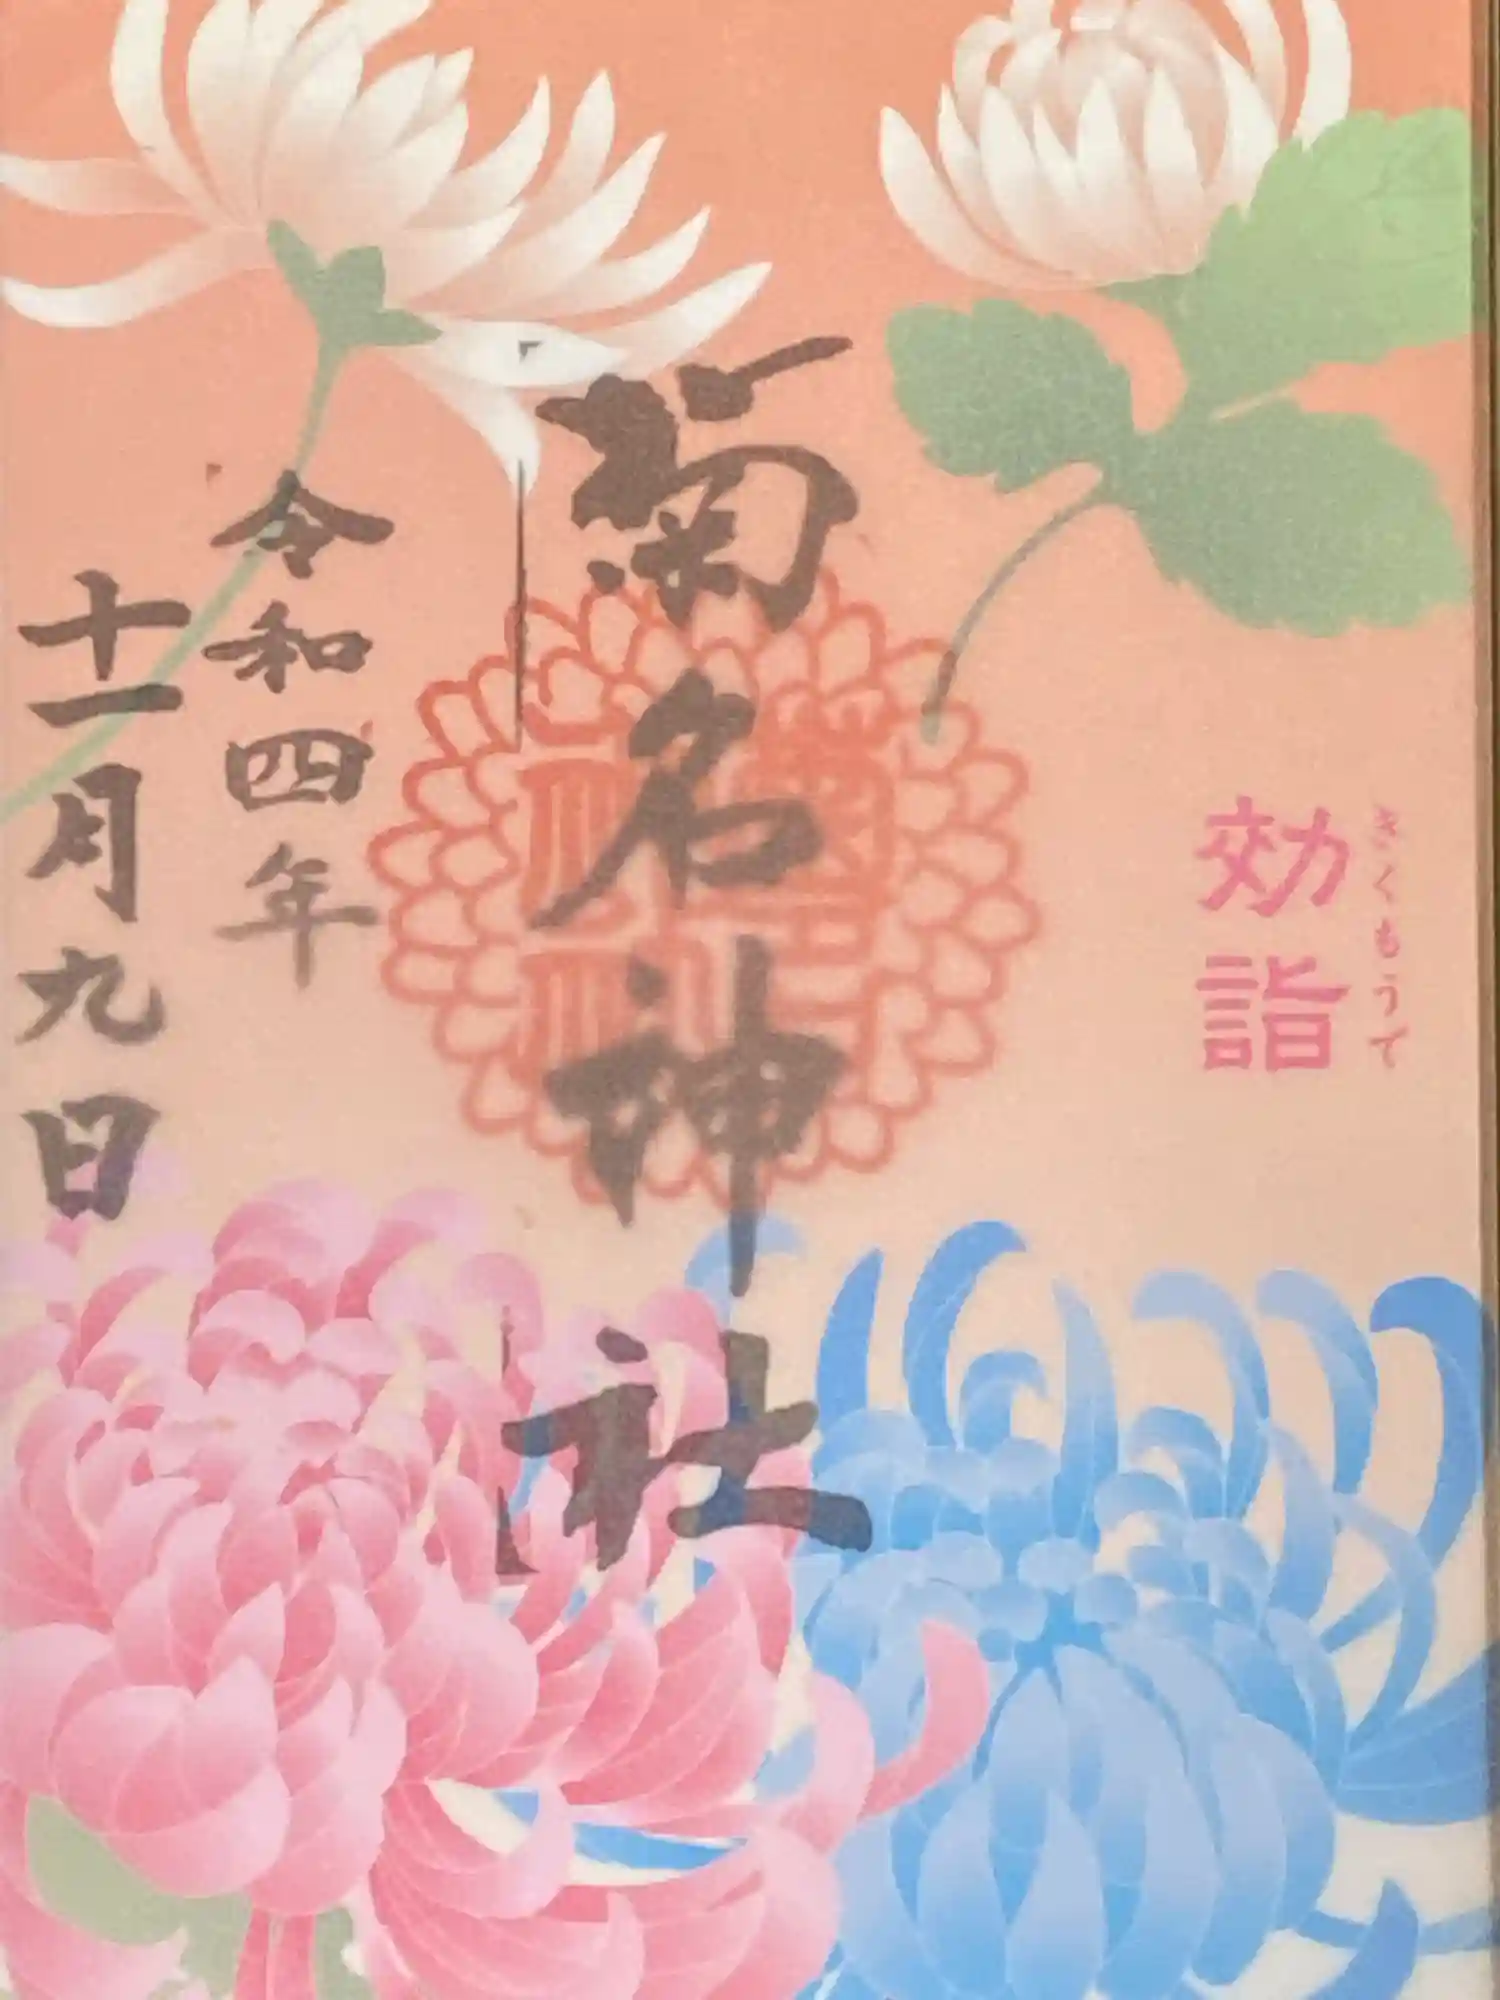 効詣
さくもうで
菊名神社
令和四年
十一月九日